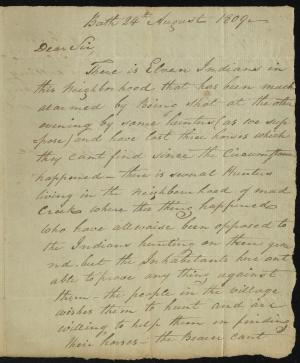 Bath 24th August 1809
Dear Sir,
There is Eleven Indians in
this Neighborhood that has been much
alarmed by Being shot at the other
evening by some hunters (as we sup
pose) and have lost three horses which
they cant find since the Circumstance
happened – there is several Hunters
living in the Neighbourhood of mud
Creek where this thing happened
who have allwaise been opposed to
the Indians hunting on their grou
nd. but the Inhabitants here ant
able to prove any thing against
them – the people in the village
wishes them to hunt and are
willing to help them in finding
their horses – the Bearer cant